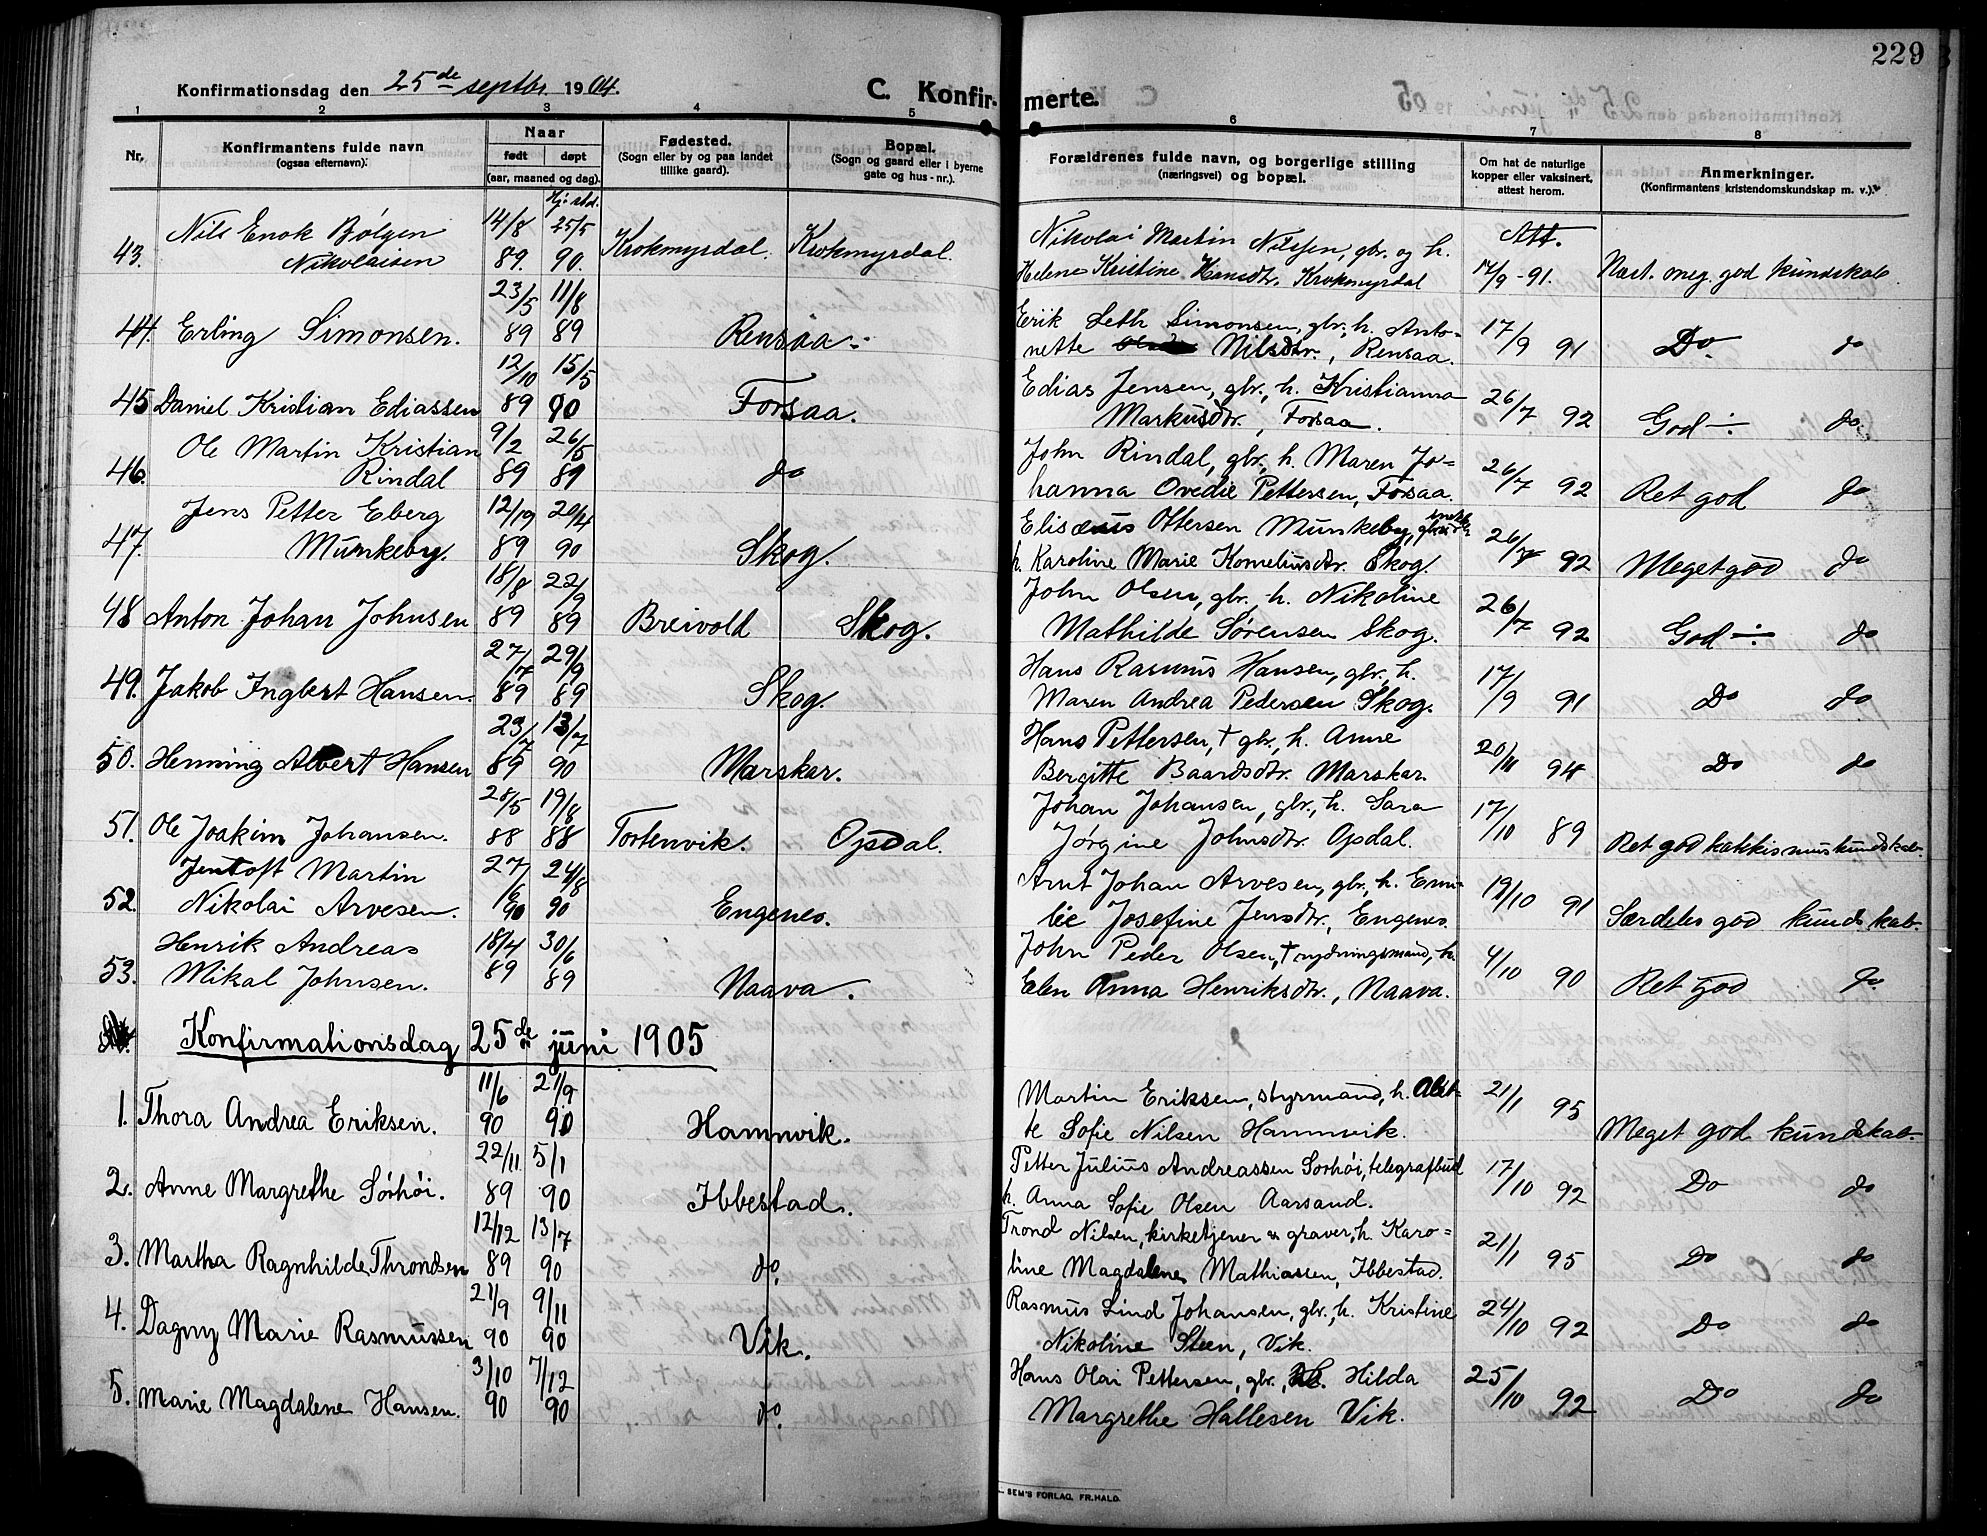 229
Konfirmationsdag den 25de septbr 1904.
C. Konfirmerte.
1 2 3 4 5 6 7 8
Nr. Konfirmantens fulde navn (ogsaa efternavn). Naar født døpt (aar, maaned og dag). Fødested. (Sogn eller by og paa landet tillike gaard). Bopæl. (Sogn og gaard eller i byerne gate og hus-nr.). Forældrenes fulde navn, og borgerlige stilling (næringsvei) og bopæl. Om hat de naturlige kopper eller vaksinert, attest herom. Anmerkninger. (Konfirmantens kristendomskundskap m. v.).
Nils Enok Bølgen 14/8 25/5 Nikolai Martin Nilssen, gbr. og h. Att.
43. Nikolaisen 89. 90. Krokmyrdal. Krokmyrdal. Helene Kristine Hansdtr. Krokmyrdal 17/9-91. Næst. meg. god kundskab
23/5 11/8 Erik Seth Simonsen, gbr., h. Anto=
44. Erling Simonsen. 89 89 Rensaa. nette Nilsdtr., Rensaa. 17/9 91 Do do
12/10 15/5 Edias Jensen, gbr., h. Kristianna
45 Daniel Kristian Ediassen 89 90 Forsaa. Markusdtr., Forsaa. 26/7 92 God ÷ do.
Ole Martin Kristian 9/2 26/5 John Rindal, gbr., h. Maren Jo=
46. Rindal 89 89 do hanna Ovedie Pettersen, Forsaa. 26/7 92 Ret god do
Jens Petter Eberg 12/19 20/4 Elisæus Ottersen Munkeby,
47. Munkeby. 89 90 Skog. h. Karoline Marie Korneliusdtr. Skog. 26/7 92 Meget god do
18/8 22/9 John Olsen, gbr., h. Nikoline
48 Anton Johan Johnsen 89 89 Breivold Skog. Mathilde Sørensen Skog. 26/7 92 God ÷ do
27/7 29/9 Hans Rasmus Hansen, gbr., h.
49. Jakob Ingbert Hansen. 89 89 Skog. Maren Andrea Pedersen Skog. 17/9 91 Do do
23/7 13/7 Hans Pettersen, † gbr., h. Anne
50. Henning Albert Hansen 89 90 Marskar. Bergitte Baardsdtr. Marskar. 20/11 94 Do do
28/5 19/8 Johan Johansen, gbr., h. Sara
51. Ole Joakim Johansen. 88 88 Tortenvik. Opsdal. Jørgine Johnsdtr. Opdal. 17/10 89 Ret god katekismuskundskab.
Jentoft Martin 27/6 24/8 Arnt Johan Arvesen, gbr., h. Emi-
52. Nikolai Arvesen. 90 90 Engenes. lie Josefine Jensdtr., Engenes. 19/10 91 Særdeles god kundskab.
Henrik Andreas 18/4 30/6 John Peder Olsen, † rydningsmand, h.
53. Mikal Johnsen. 89 89 Naava. Elen Anna Henriksdtr., Naava. 4/10 90 Ret god do.
Konfirmationsdag 25de juni 1905
11/6 21/9 Martin Eriksen, styrmand, h. Alet-
1. Thora Andrea Eriksen. 90 90 Hamnvik. te Sofie Nilsen Hamnvik. 21/1 95 Meget god kundskab.
22/11 5/1 Petter Julius Andreassen Sørhøi, telegrafbud
2. Anne Margrethe Sørhøi. 89 90 Ibbestad. h. Anna Sofie Olsen Aarsand. 17/10 92 Do do
12/12 13/7 Trond Nilsen, kirketjener & graver, h. Karo=
3. Martha Ragnhilde Throndsen 89 90 do. line Magdalene Mathiassen, Ibbestad. 21/1 95 Do do
21/9 9/11 Rasmus Lind Johansen, gbr., h. Kristine
4. Dagny Marie Rasmussen 90 90 Vik. Nikoline Steen, Vik. 24/10 92 Do do
3/10 7/12 Hans Olai Pettersen, gbr., h. Hilda
5. Marie Magdalene Hansen. 90 90 do. Margrethe Hallesen Vik. 25/10 92 Do do
SEM'S FORLAG, FR.HALD.